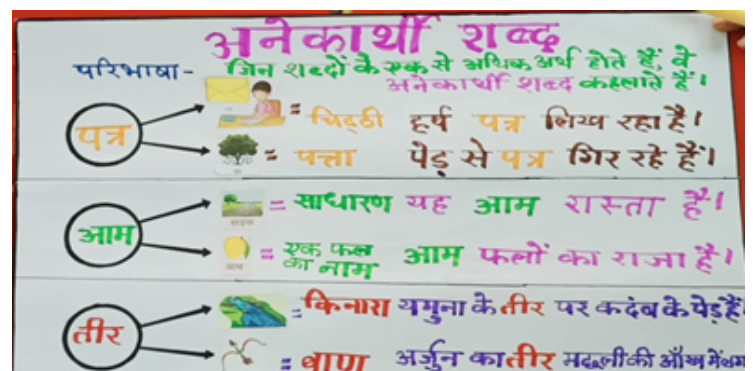 अनेकार्थी शब्द
परिभाषा- जिन शब्दों के एक से अधिक अर्थ होते हैं, वे
अनेकार्थी शब्द कहलाते हैं।
पत्र
= चिट्ठी हर्ष पत्र लिख रहा है।
= पत्ता पेड़ से पत्र गिर रहे हैं।
आम
सड़क
= साधारण यह आम रास्ता है।
आम
= एक फल का नाम आम फलों का राजा है।
तीर
= किनारा यमुना के तीर पर कदंब के पेड़ हैं।
= बाण अर्जुन का तीर मछली की आँख में